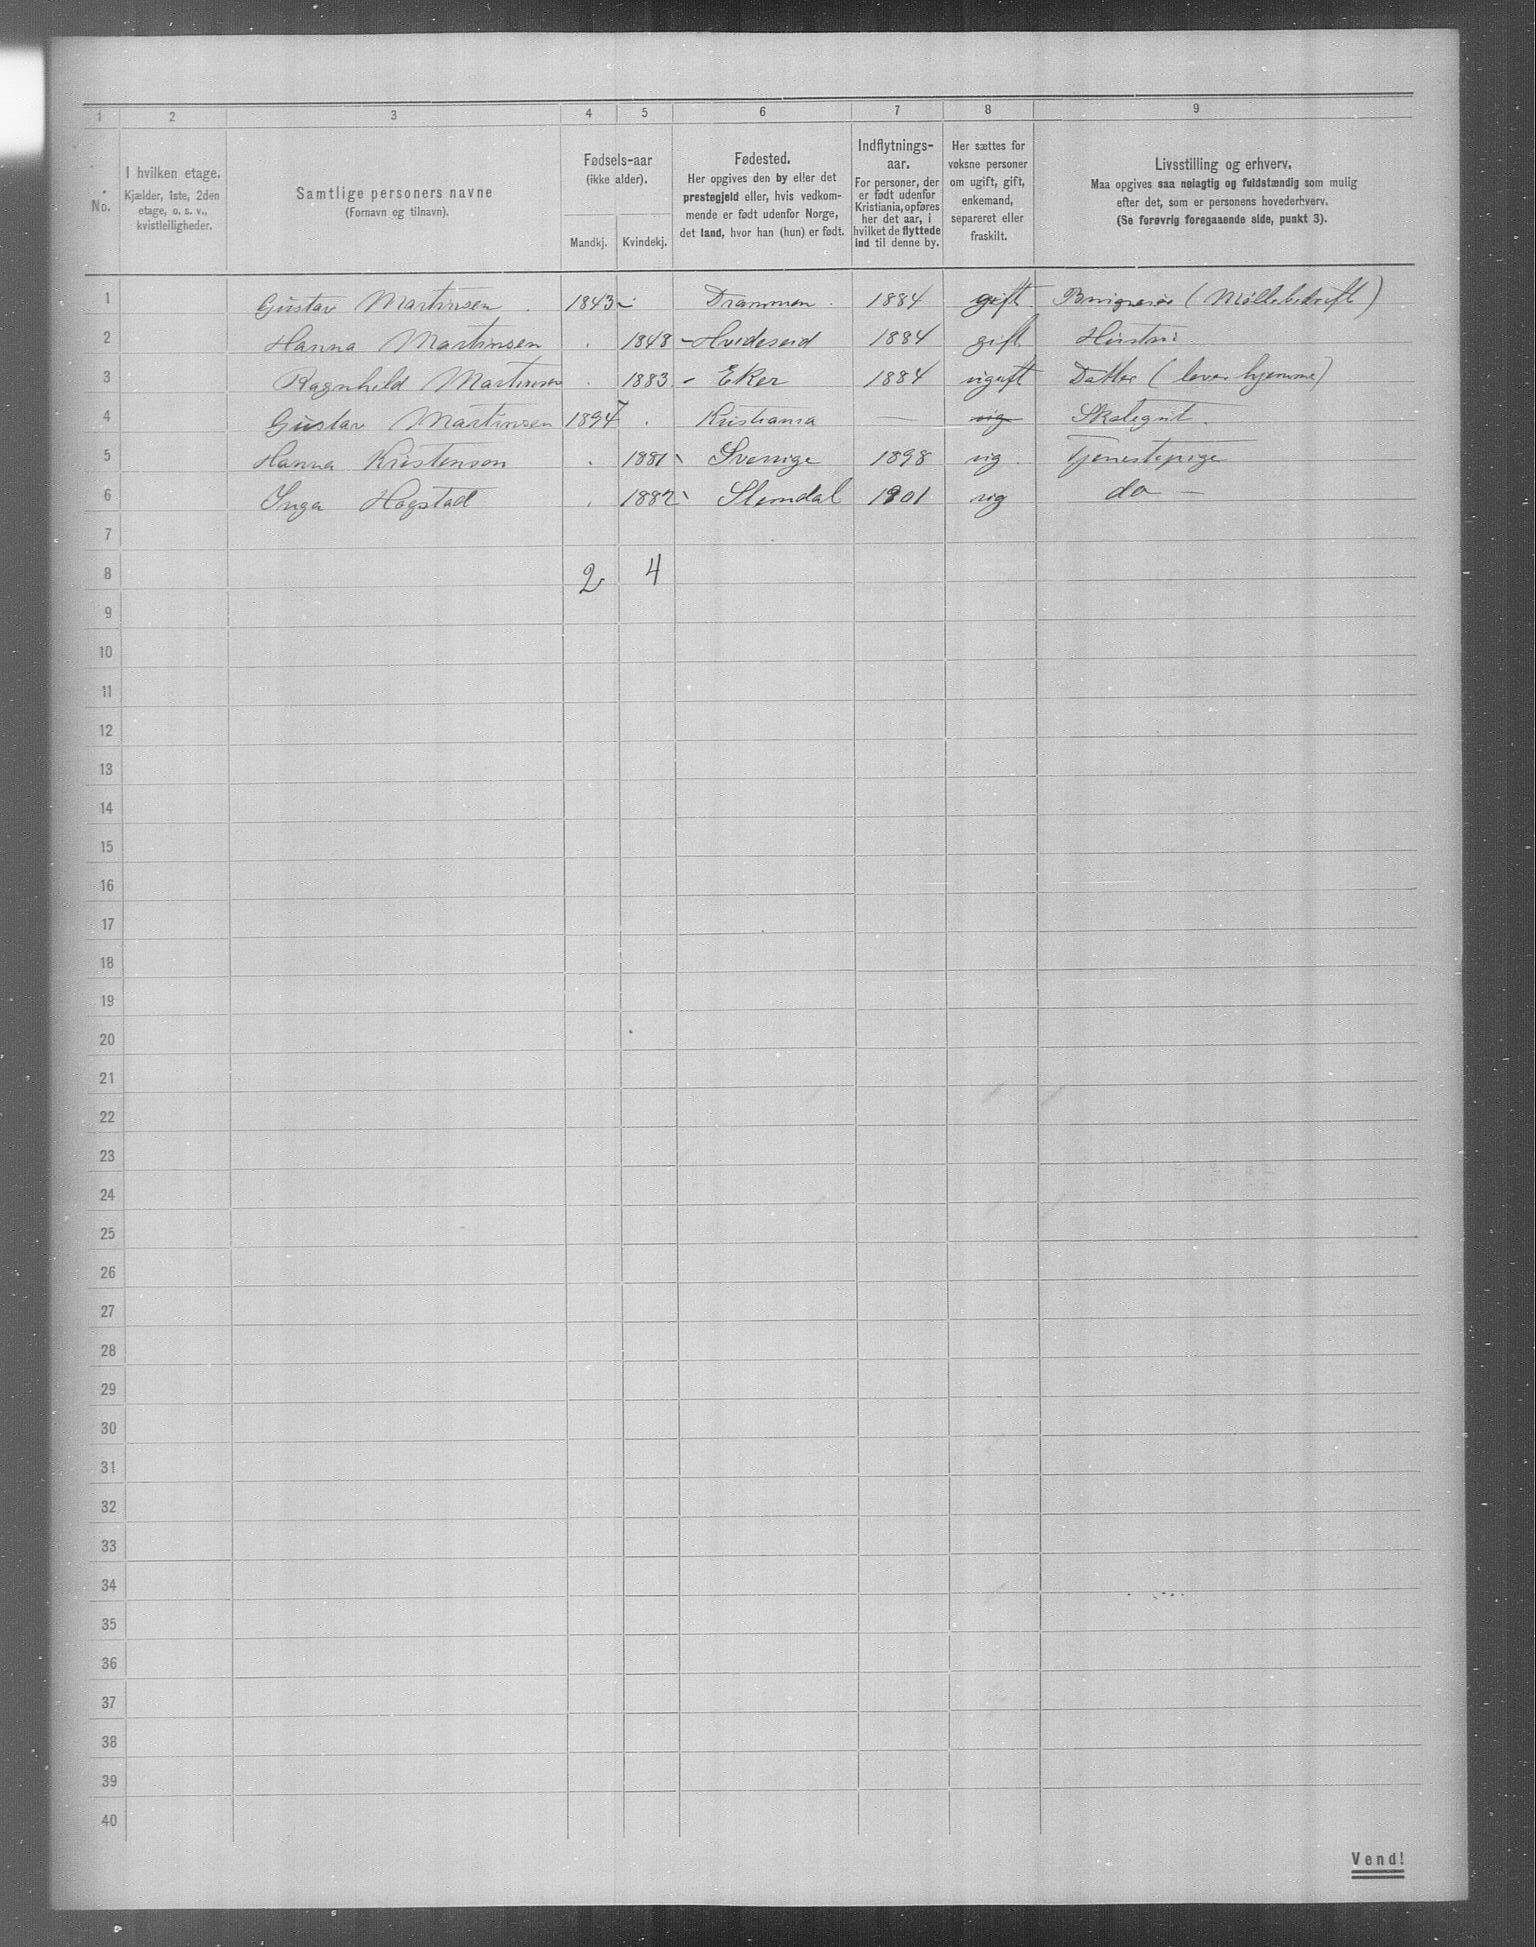 1 2 3 4 5 6 7 8 9
No.
I hvilken etage.
Kjælder, 1ste, 2den
etage, o. s. v.,
kvistleiligheder.
Samtlige personers navne
(Fornavn og tilnavn).
Fødsels-aar
(ikke alder).
Mandkj. Kvindekj.
Fødested.
Her opgives den by eller det
prestegjeld eller, hvis vedkom-
mende er født udenfor Norge,
det land, hvor han (hun) er født.
Indflytnings-
aar.
For personer, der
er født udenfor
Kristiania, opføres
her det aar, i
hvilket de flyttede
ind til denne by.
Her sættes for
voksne personer
om ugift, gift,
enkemand,
separeret eller
fraskilt.
Livsstilling og erhverv.
Maa opgives saa nøiagtig og fuldstændig som mulig
efter det, som er personens hovederhverv.
(Se forøvrig foregaaende side, punkt 3).
1 Gustav Martinsen . 1843 - Drammen . 1884 gift (Møllebedrift)
2 Hanna Martinsen . 1848 - Hvideseid 1884 gift Hustru
3 Ragnhild Martinsen . 1883 - Eker 1884 ugift Datter (lever hjemme)
4 Gustav Martinsen 1894 . Kristiania — ug Skolegut .
5 Hanna Kristenson . 1881 Sverrige 1898 ug . Tjenestepige
6 Inga Hogstad . 1882 Slemdal 1901 ug do —
7
8 2 4
9
10
11
12
13
14
15
16
17
18
19
20
21
22
23
24
25
26
27
28
29
30
31
32
33
34
35
36
37
38
39
40
Vend!